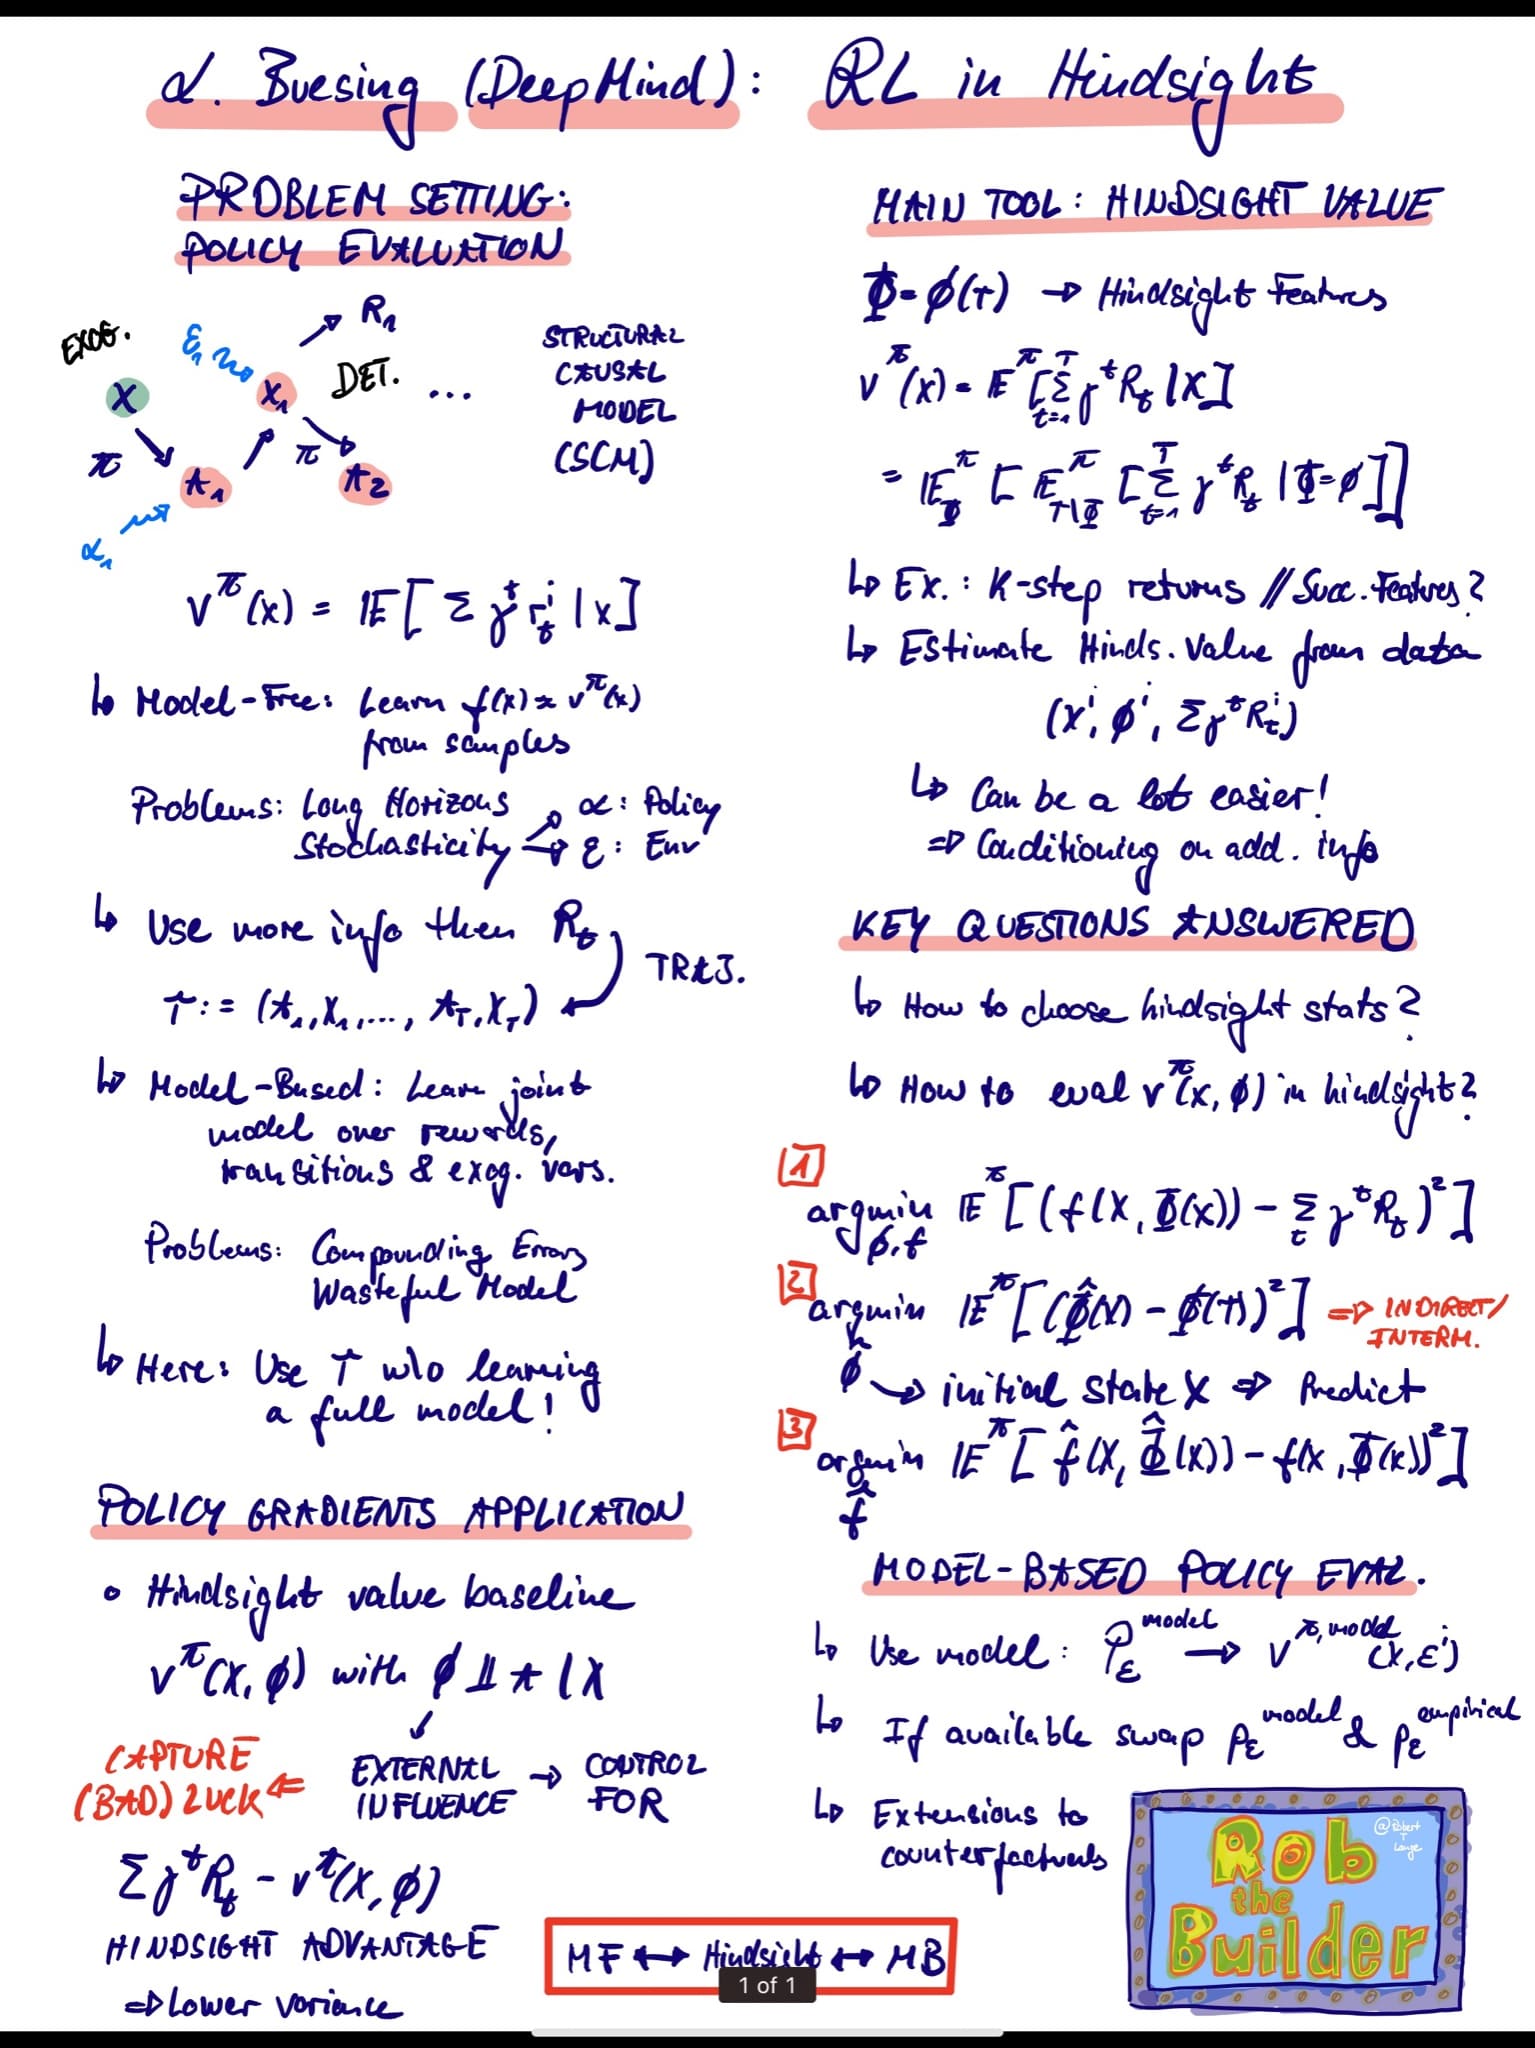 L. Buesing (DeepMind): RL in Hindsight
PROBLEM SETTING:
POLICY EVALUATION
EXOG.
ε₁
R₁
X
X₁
DET.
...
π
π
A₁
A₂
α₁
STRUCTURAL
CAUSAL
MODEL
(SCM)
v^π(x) = E[Σ γ^t r_t^i | x]
↳ Model-Free: Learn f(x) ≈ v^π(x)
from samples
Problems: Long Horizons
α: Policy
Stochasticity
ε: Env
↳ Use more info then R_t
TRAJ.
τ := (A₁, X₁, ..., A_T, X_T)
↳ Model-Based: Learn joint
model over rewards,
transitions & exog. vars.
Problems: Compounding Errors
Wasteful Model
↳ Here: Use τ w/o learning
a full model!
POLICY GRADIENTS APPLICATION
• Hindsight value baseline
v^π(X, φ) with φ ⫫ A | X
CAPTURE
(BAD) LUCK ⇐
EXTERNAL
INFLUENCE
→ CONTROL
FOR
Σγ^t R_t - v^π(X, φ)
HINDSIGHT ADVANTAGE
⇒ Lower variance
MAIN TOOL: HINDSIGHT VALUE
Φ = φ(τ) → Hindsight Features
v^π(x) = E^π[Σ_{t=1}^T γ^t R_t | X]
= E_Φ^π [E_{τ|Φ}^π [Σ_{t=1}^T γ^t R_t | Φ=φ]]
↳ Ex.: K-step returns // Succ. Features?
↳ Estimate Hinds. Value from data
(X^i, φ^i, Σγ^t R_t^i)
↳ Can be a lot easier!
⇒ Conditioning on add. info
KEY QUESTIONS ANSWERED
↳ How to choose hindsight stats?
↳ How to eval v^π(x, φ) in hindsight?
1
argmin_{φ,f} E^π[(f(X, Φ(x)) - Σ_t γ^t R_t)²]
2
argmin_φ̂ E^π[(Φ̂(X) - Φ(τ))²] ⇒ INDIRECT/
INTERM.
→ initial state X ⇒ Predict
3
argmin_f̂ E^π[f̂(X, Φ̂(X)) - f(X, Φ(x))²]
MODEL-BASED POLICY EVAL.
↳ Use model: P_ε^model → v^{π,model}(X, ε^i)
↳ If available swap p_ε^model & p_ε^empirical
↳ Extensions to
counterfactuals
MF ↔ Hindsight ↔ MB
1 of 1
Rob
the
Builder
@Robert
T
Lange